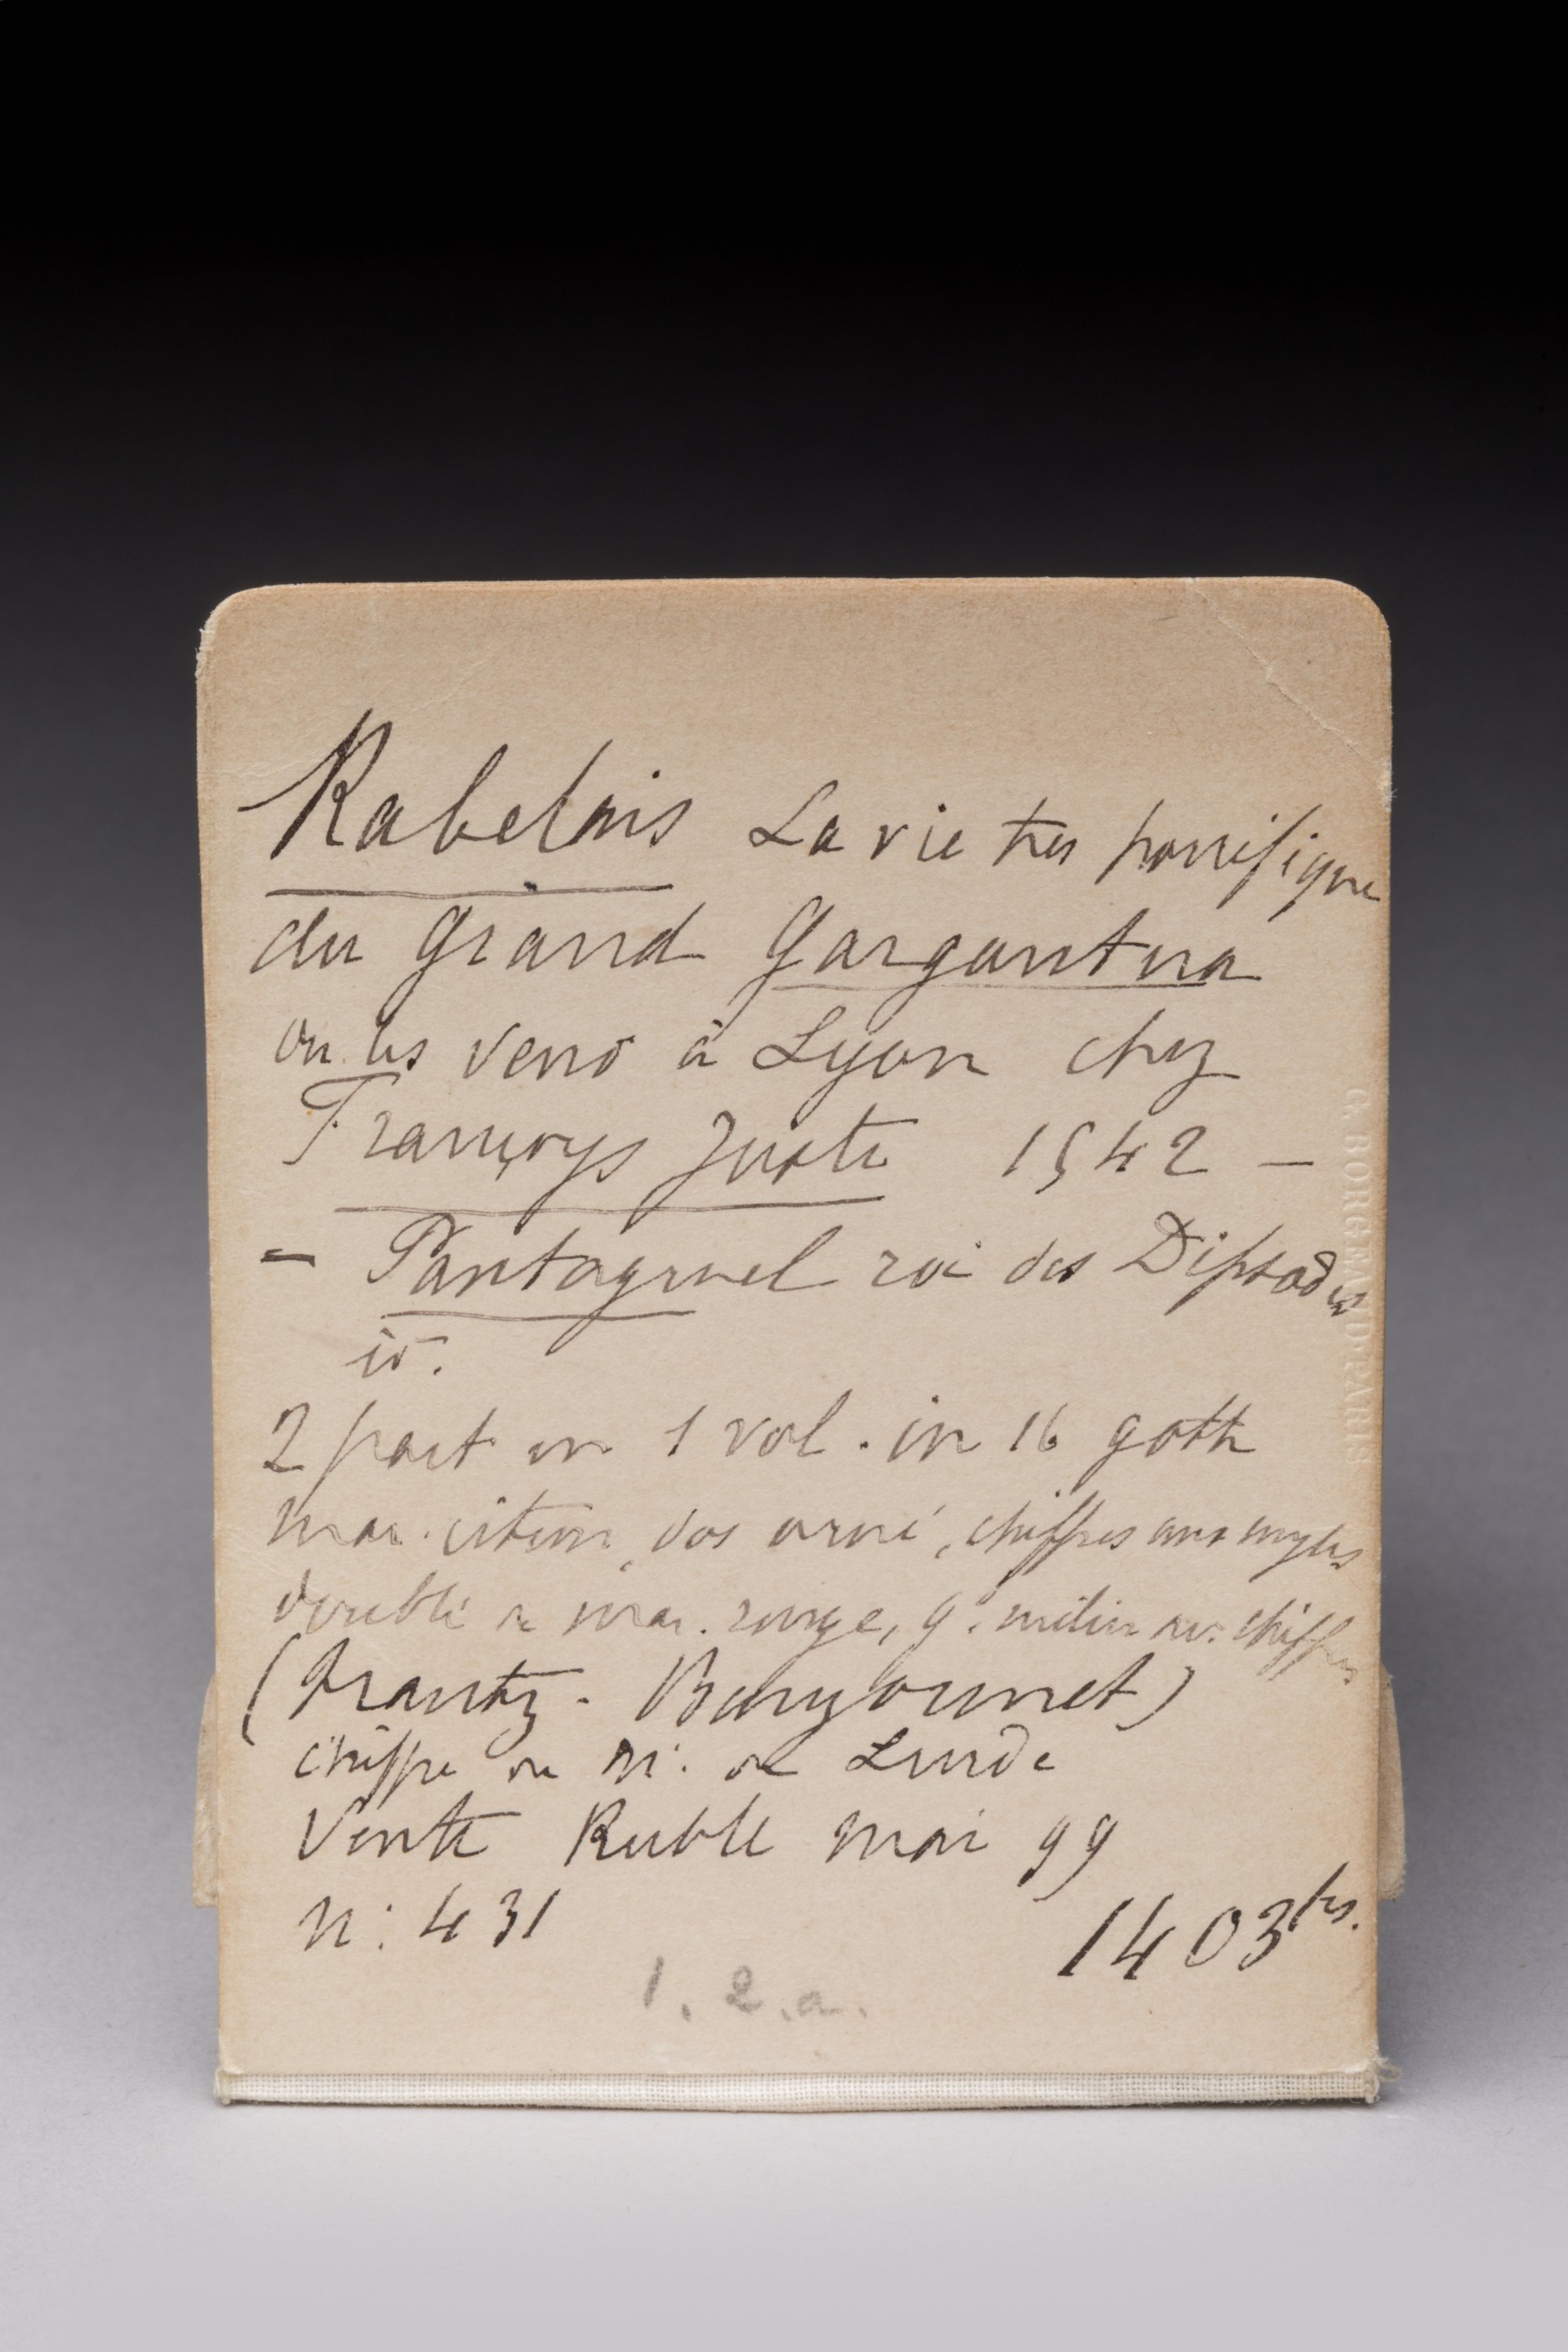 Rabelais La vie tres horrifique
du grand Gargantua
on les vend à Lyon chez
Françoys Juste 1542 —
– Pantagruel roi des Dipsodes
id.
2 part en 1 vol. in 16 goth
mar. citron, dos orné, chiffres aux angles
doublé de mar. rouge, milieu av. chiffres
(Trautz-Bauzonnet)
chiffre de M. de Lurde
Vente Ruble mai 99
N: 431
1403 frs.
1. 2. a.
C. BORGEAUD PARIS